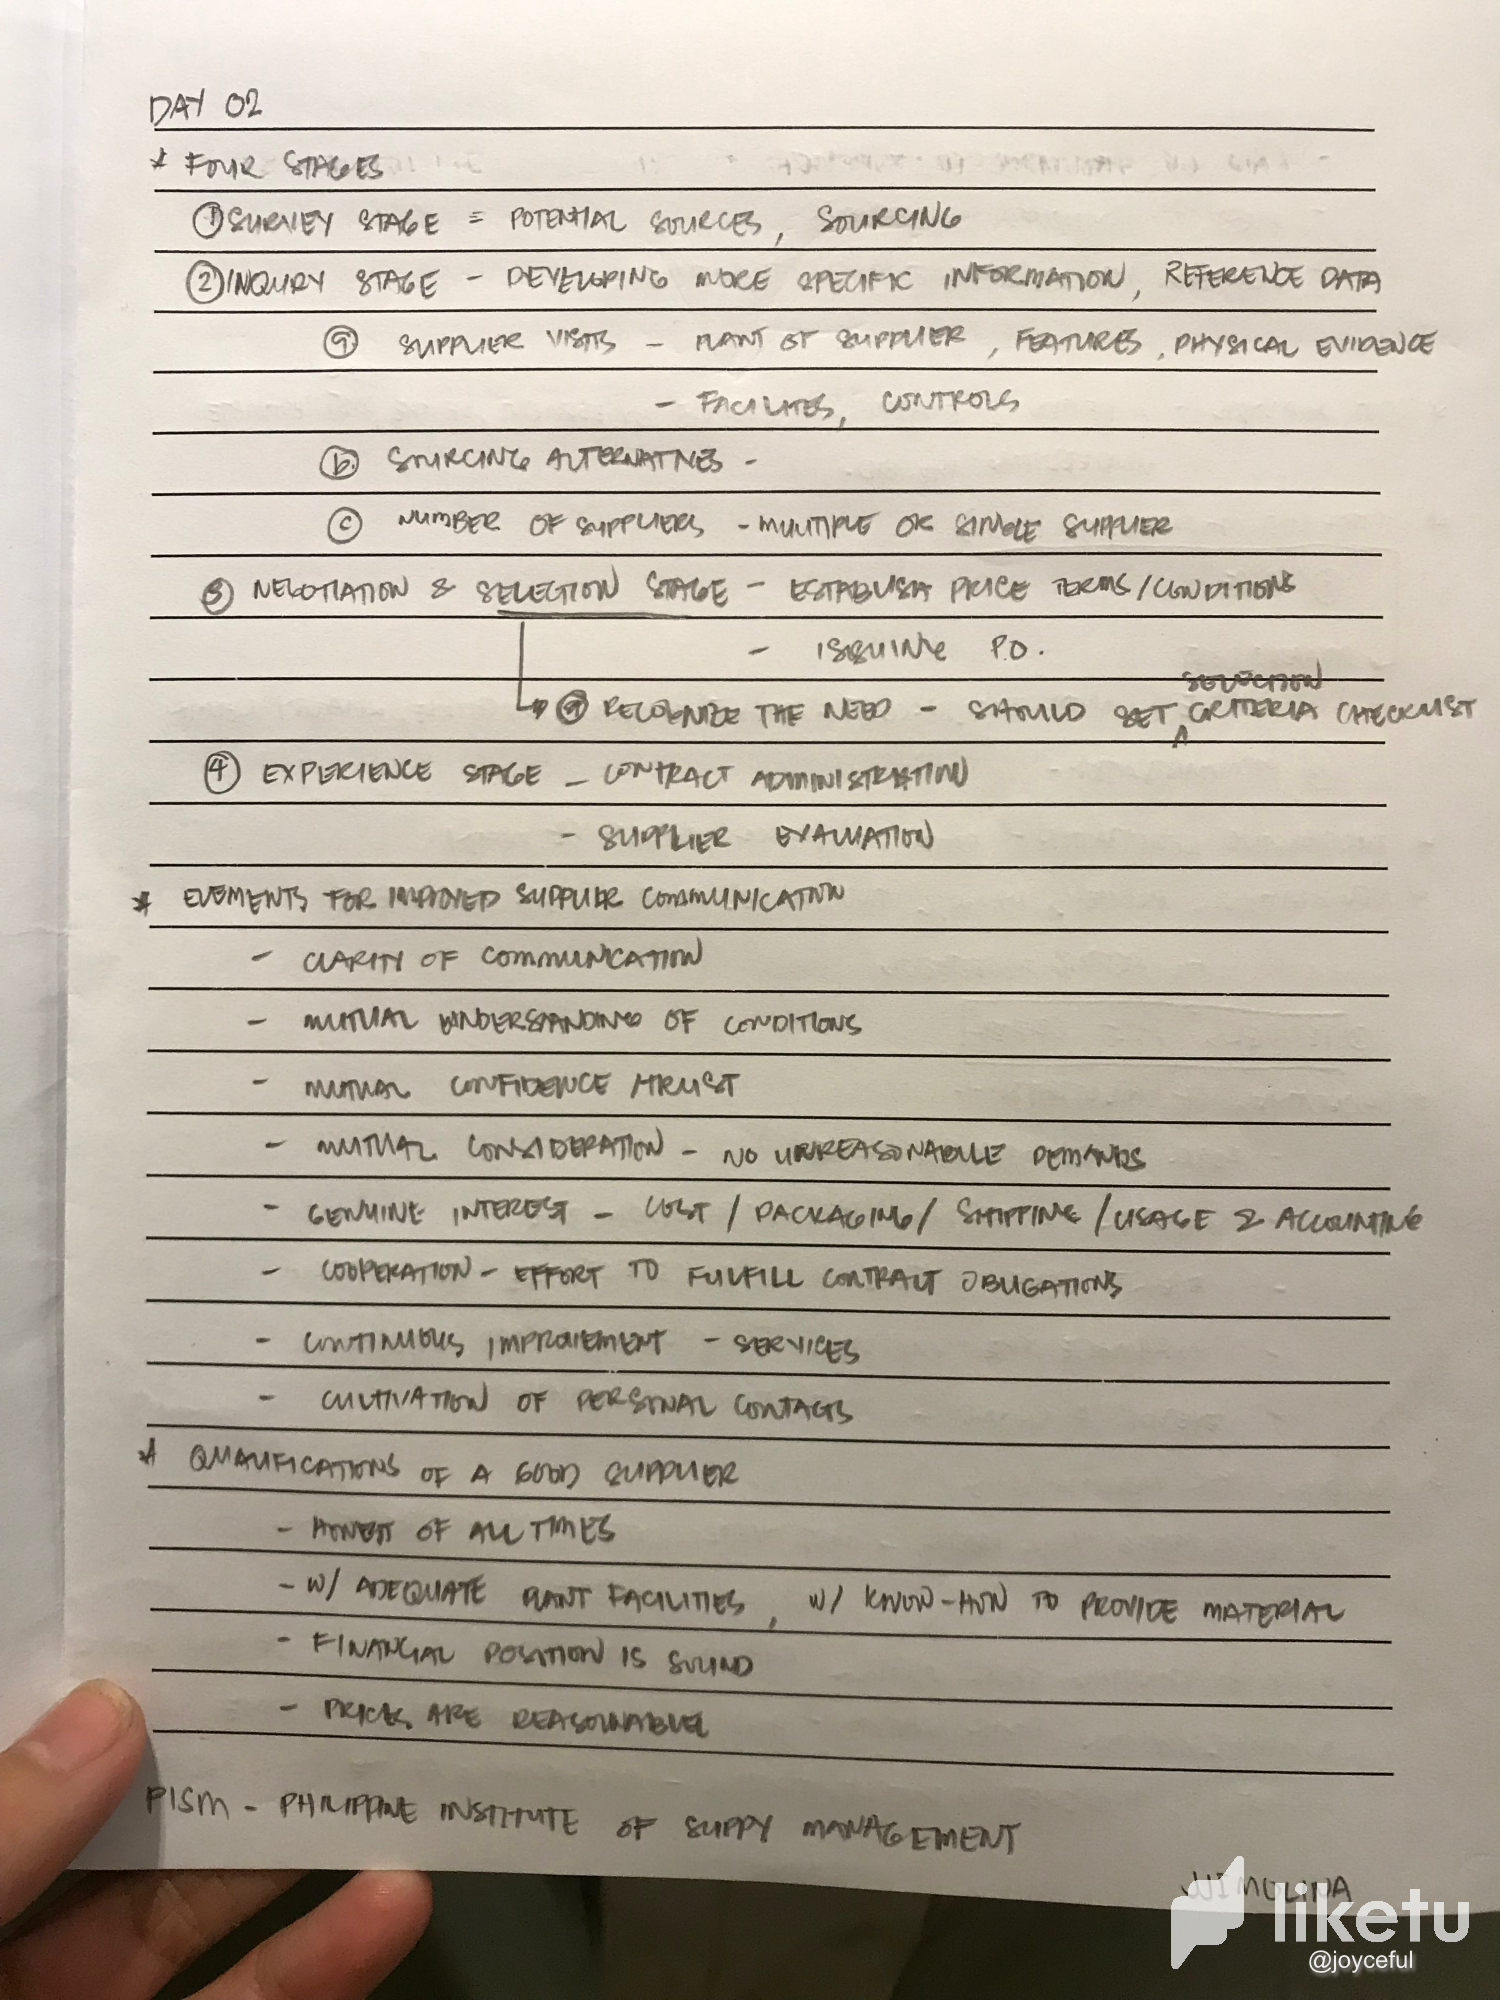 DAY 02
* FOUR STAGES
① SURVEY STAGE = POTENTIAL SOURCES, SOURCING
② INQUIRY STAGE - DEVELOPING MORE SPECIFIC INFORMATION, REFERENCE DATA
ⓐ SUPPLIER VISITS - PLANT OF SUPPLIER, FEATURES, PHYSICAL EVIDENCE
- FACILITES, CONTROLS
ⓑ SOURCING ALTERNATIVES -
ⓒ NUMBER OF SUPPLIERS - MULTIPLE OR SINGLE SUPPLIER
③ NEGOTIATION & SELECTION STAGE - ESTABLISH PRICE TERMS/CONDITIONS
- ISSUING P.O.
SELECTION
ⓐ RECOGNIZE THE NEED - SHOULD SET ^ CRITERIA CHECKLIST
④ EXPERIENCE STAGE - CONTRACT ADMINISTRATION
- SUPPLIER EVALUATION
* ELEMENTS FOR IMPROVED SUPPLIER COMMUNICATION
- CLARITY OF COMMUNICATION
- MUTUAL UNDERSTANDING OF CONDITIONS
- MUTUAL CONFIDENCE /TRUST
- MUTUAL CONSIDERATION - NO UNREASONABLE DEMANDS
- GENUINE INTEREST - COST / PACKAGING / SHIPPING / USAGE & ACCOUNTING
- COOPERATION - EFFORT TO FULFILL CONTRACT OBLIGATIONS
- CONTINUOUS IMPROVEMENT - SERVICES
- CULTIVATION OF PERSONAL CONTACTS
* QUALIFICATIONS OF A GOOD SUPPLIER
- HONEST OF ALL TIMES
- W/ ADEQUATE PLANT FACILITIES, W/ KNOW-HOW TO PROVIDE MATERIAL
- FINANCIAL POSITION IS SOUND
- PRICES ARE REASONABLE
PISM - PHILIPPINE INSTITUTE OF SUPPY MANAGEMENT
MOLINA
liketu
@joyceful